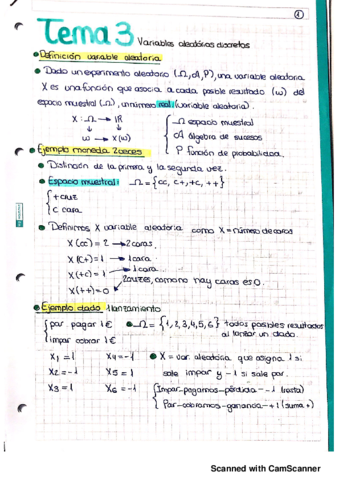 1
Tema 3 Variables aleatorias discretas
Definición variable aleatoria
Dado un experimento aleatorio (Ω, A, P), una variable aleatoria
X es una función que asocia a cada posible resultado (ω) del
espacio muestral (Ω), un número real. (variable aleatoria).
X: Ω → IR
ω → X(ω)
Ω espacio muestral
A álgebra de sucesos
P función de probabilidad.
Ejemplo moneda 2 veces
Distinción de la primera y la segunda vez.
Espacio muestral: Ω = {cc, c+, +c, ++}
+ cruz
c cara
Definimos X variable aleatoria como X = número de caras
X(cc) = 2 → 2 caras.
X(c+) = 1 → 1 cara
X(+c) = 1 → 1 cara
X(++) = 0 2 cruces, como no hay caras es 0.
Ejemplo dado 1 lanzamiento
par pagar 1€
impar cobrar 1€
Ω = {1, 2, 3, 4, 5, 6} todos posibles resultados
al lanzar un dado.
X1 = 1 X4 = -1
X2 = -1 X5 = 1
X3 = 1 X6 = -1
X = var. aleatoria que asigna 1 si
sale impar y -1 si sale par.
Impar-pagamos-pérdida → -1 (resta)
Par-cobramos-ganancia → +1 (suma +)
Scanned with CamScanner